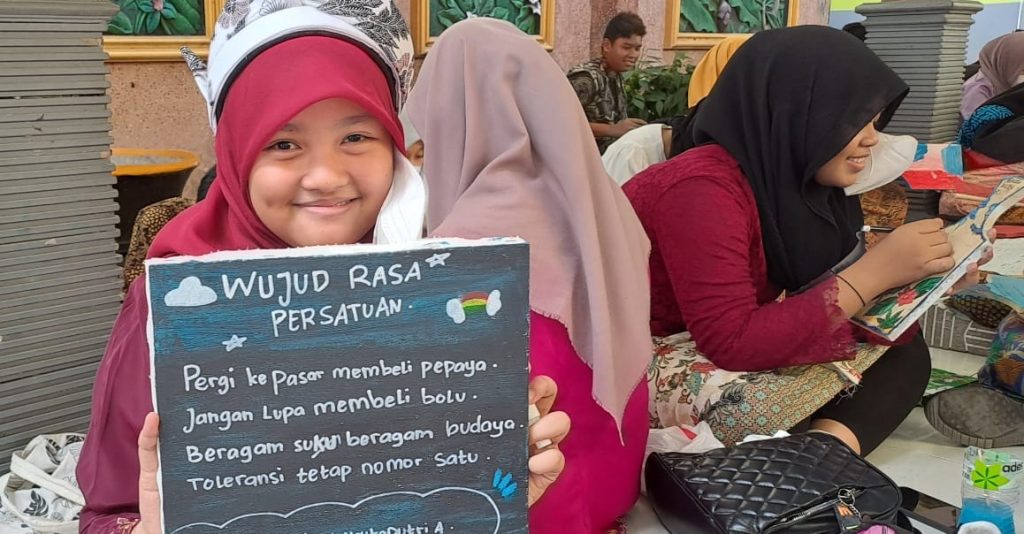 WUJUD RASA
PERSATUAN.
Pergi ke pasar membeli pepaya.
Jangan lupa membeli bolu.
Beragam suku beragam budaya.
Toleransi tetap nomor satu.
Putri A.
ade